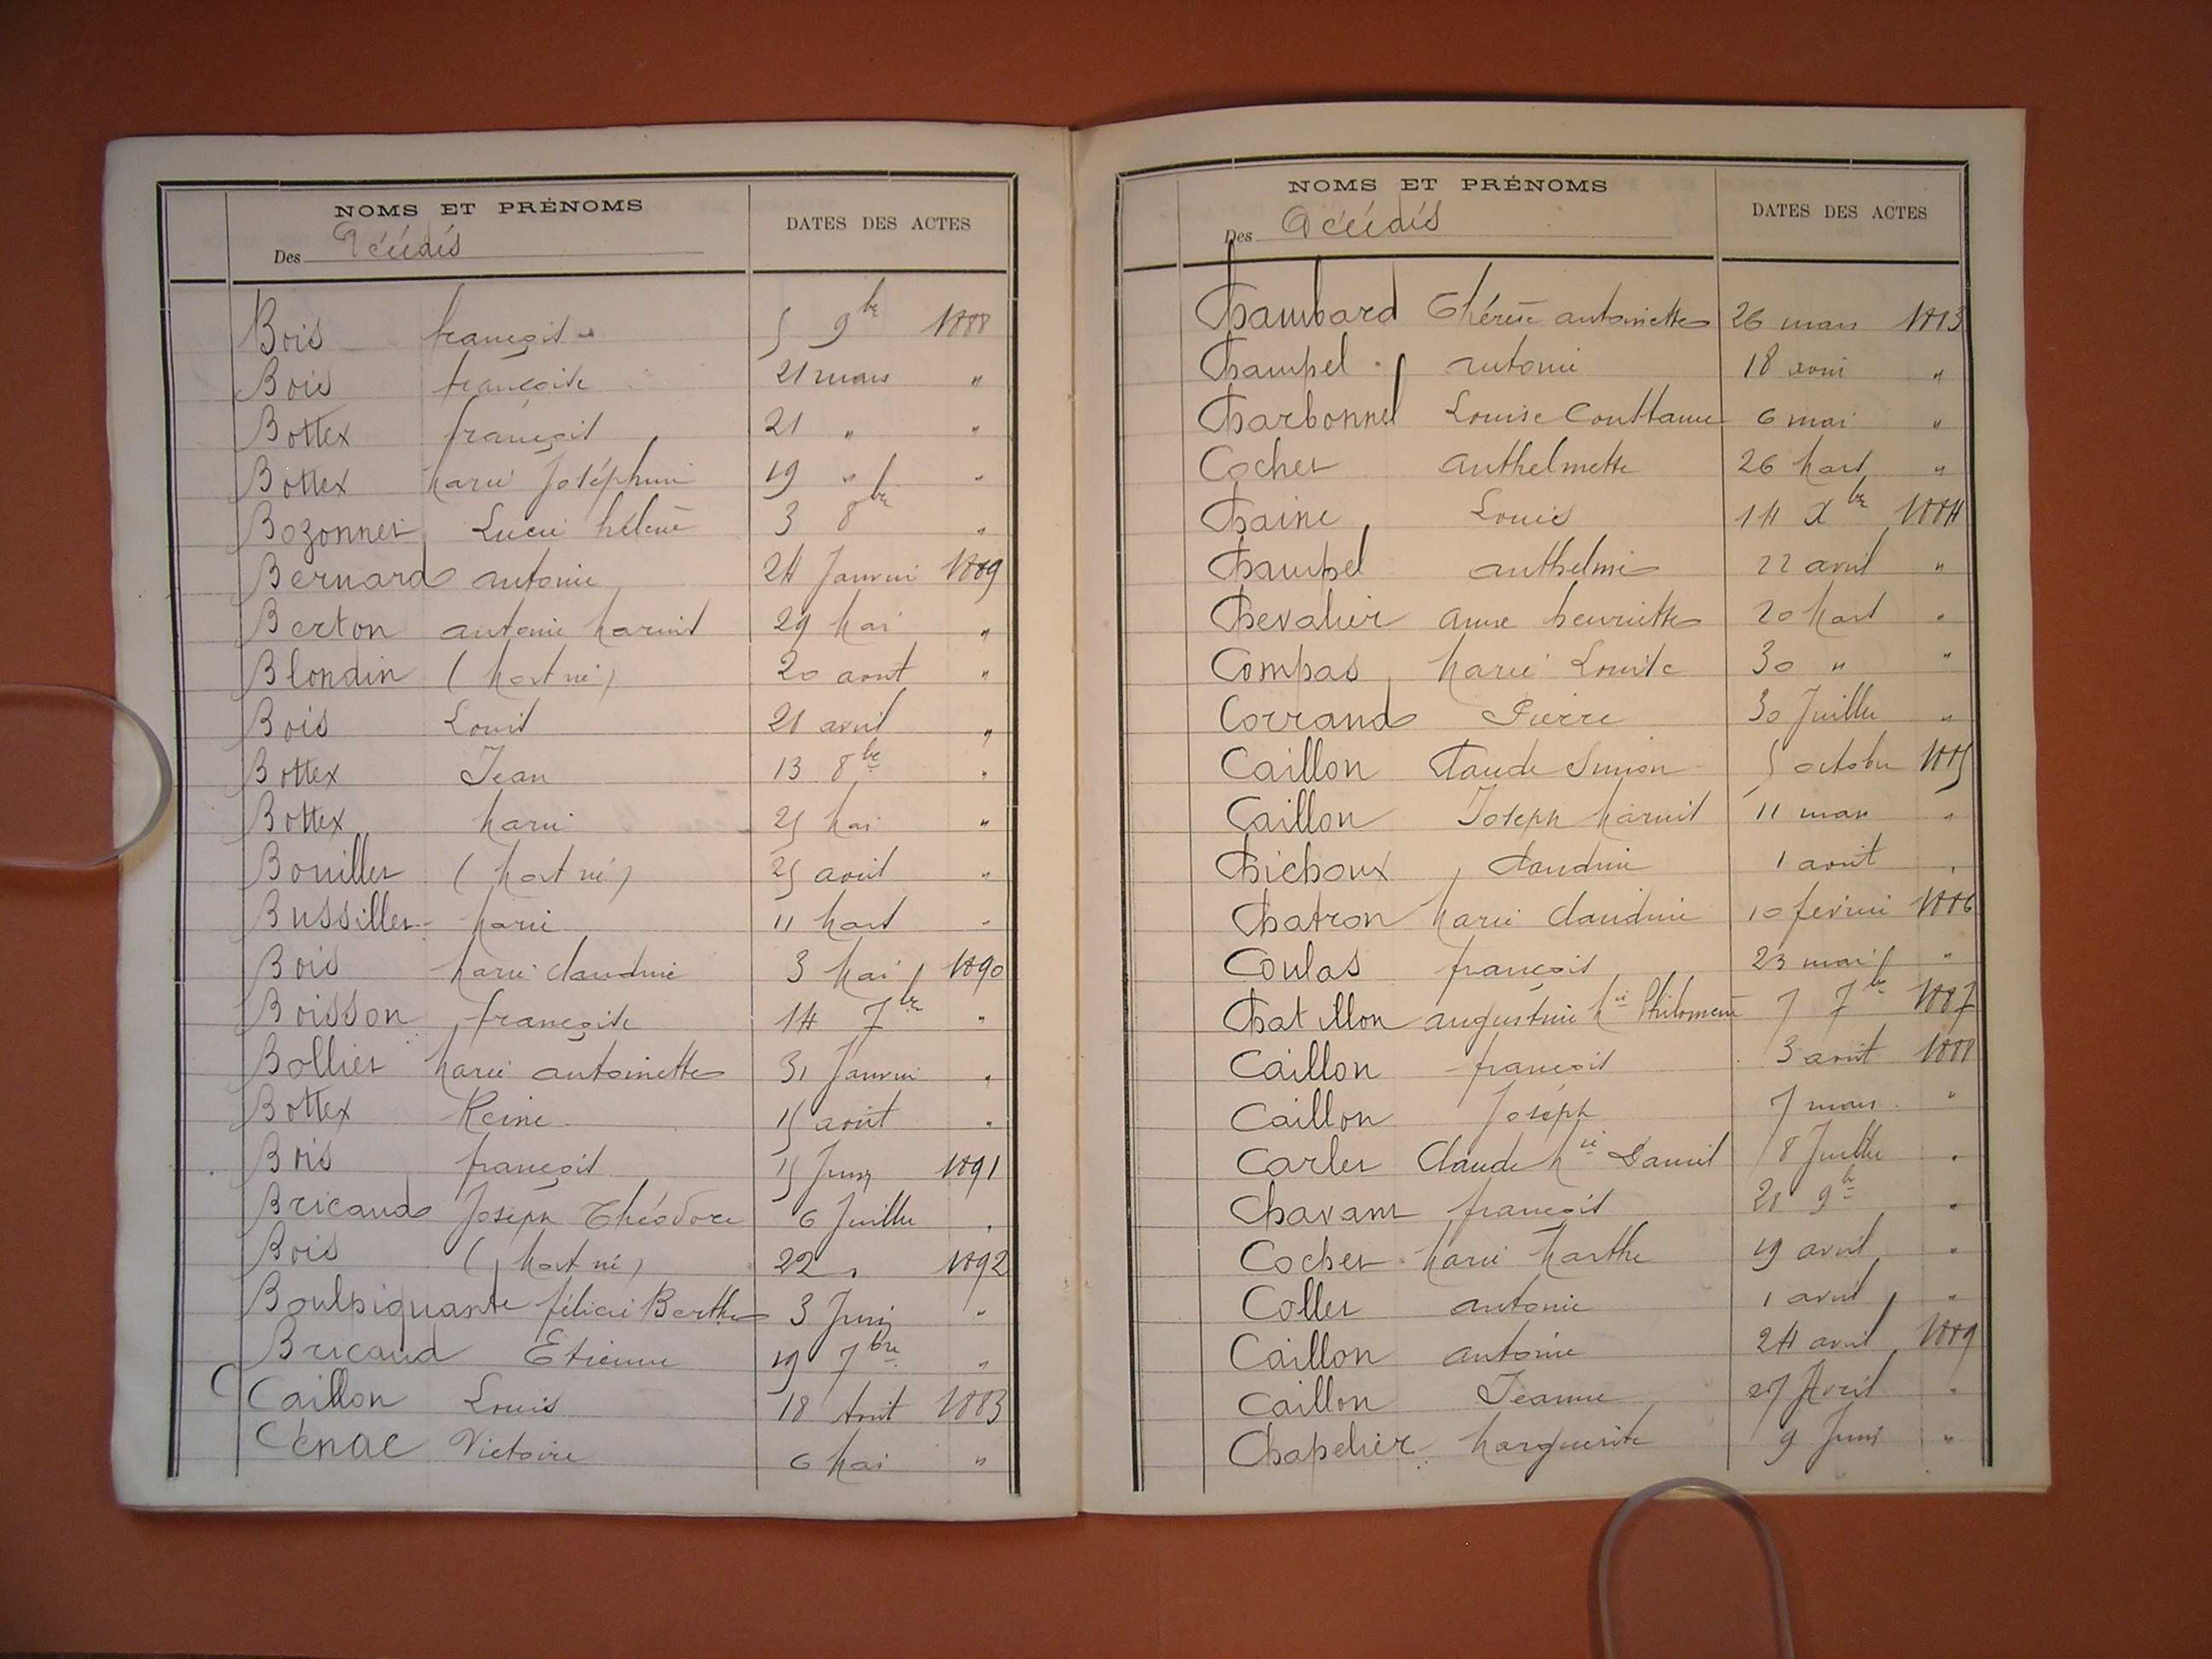 NOMS ET PRÉNOMS
Des Décédés
DATES DES ACTES
Bois françois 5 9bre 1888
Bois françoise 21 mars "
Bottex françois 21 " "
Bottex Marie Joséphine 19 " "
Bozonnet Lucie hélène 3 8bre "
Bernard antoine 24 Janvier 1889
Berton antoine Marius 29 Mai "
Blondin (Mort né) 20 aout "
Bois Louis 21 avril "
Bottex Jean 13 8bre "
Bottex Marie 25 Mai "
Bouillet (Mort né) 25 aout "
Bussillet Marie 11 Mars "
Bois Marie claudine 3 Mai 1890
Boisson françoise 14 7bre "
Bollier Marie antoinette 31 Janvier "
Bottex Reine 15 août "
Bois françois 15 Juin 1891
Bricaud Joseph Théodore 6 Juillet "
Bois (Mort né) 22 " 1892
Boulpiquante félicie Berthe 3 Juin "
Bricaud Etienne 19 7bre "
C Caillon Louis 18 Aout 1883
Cénac Victoire 6 Mai "
NOMS ET PRÉNOMS
Des Décédés
DATES DES ACTES
Chambard Thérèse antoinette 26 mars 1883
Champel antoine 18 "
Charbonnel Louise Constance 6 mai "
Cochet anthelmette 26 Mars "
Chaine Louis 14 Xbre 1884
Champel anthelme 22 avril "
Chevalier anne henriette 20 Mars "
Compas Marie Louise 30 " "
Corrand Pierre 30 Juillet "
Caillon Claude Simon 5 octobre 1885
Caillon Joseph Marius 11 mars "
Chichoux Claudine 1 aout "
Chatron Marie Claudine 10 fevrier 1886
Coulas françois 23 mai "
Chatillon augustine Mie Philomène 7 7bre 1887
Caillon françois 3 aout 1888
Caillon Joseph 7 mars "
Carlet Claude Mie Daniel 8 Juillet "
Chavant françois 21 9bre "
Cochet Marie Marthe 19 avril "
Collet antoine 1 avril "
Caillon antoine 24 avril 1889
Caillon Jeanne 27 Avril "
Chapelier Marguerite 9 Juin "